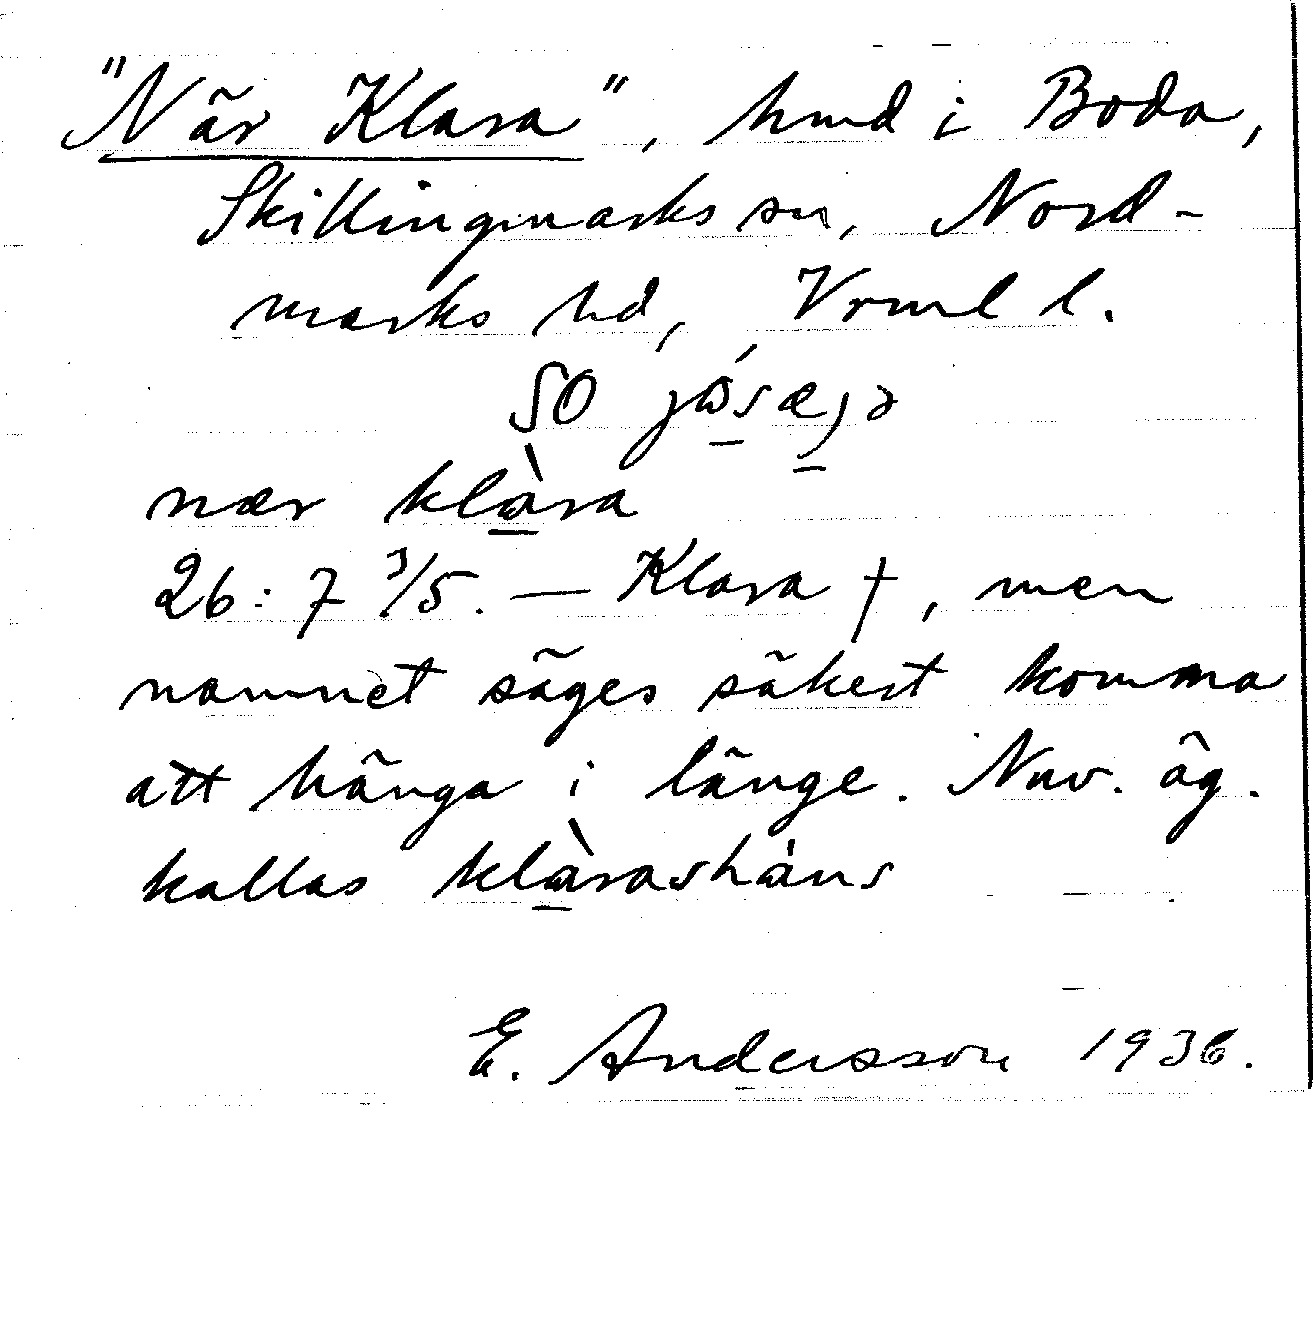 "När Klara", hmd i Boda,
Skillingmarks sn, Nord-
marks hd, Vrml l.
SO
nær klàra
26:7 3/5. — Klara †, men
namnet säges säkert komma
att hänga i länge. Nuv. äg.
kallas klàrasháns
E. Andersson 1936.